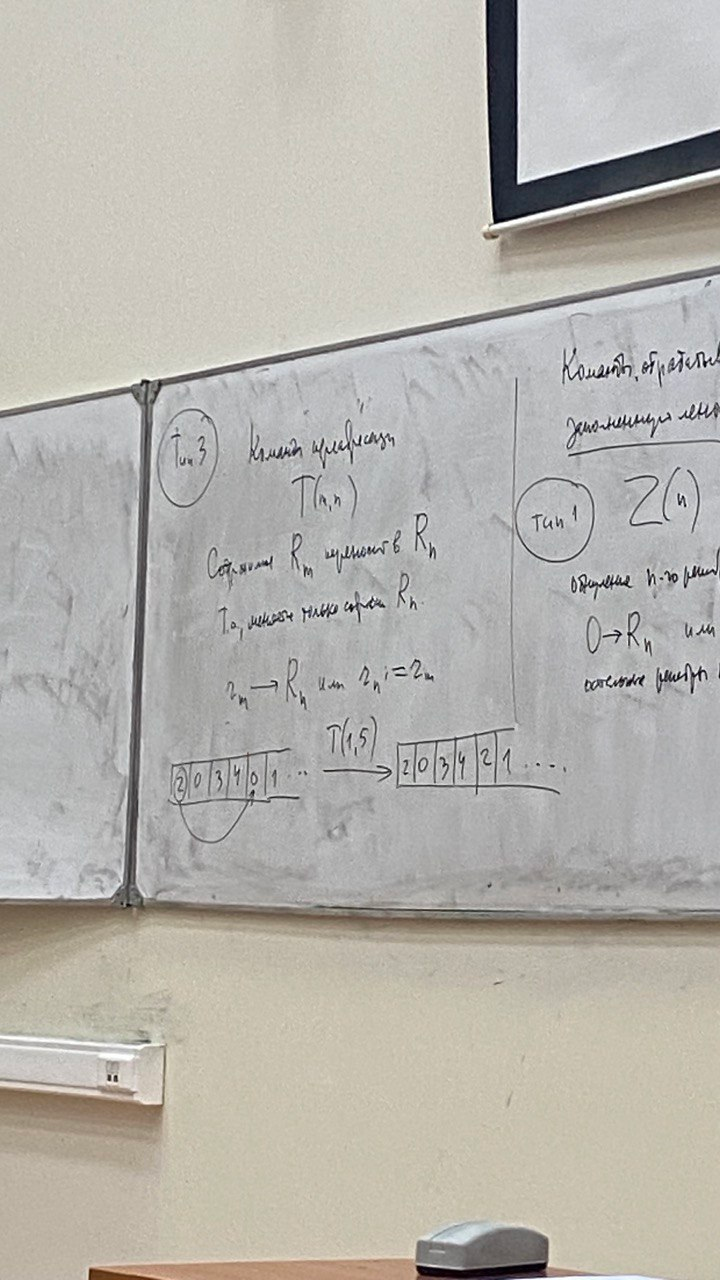 Тип 3
Команды переадресации
T(m,n)
Содержимое Rm переносит в Rn
Т.о., меняется только содерж Rn.
rm → Rn или rn := rm
2 0 3 4 0 1 ... T(1,5) → 2 0 3 4 2 1 ....
Команды, обрабатыв
заполненную лен
Тип 1 Z(n)
обнуление n-го реги
0→Rn или
остальные регистры